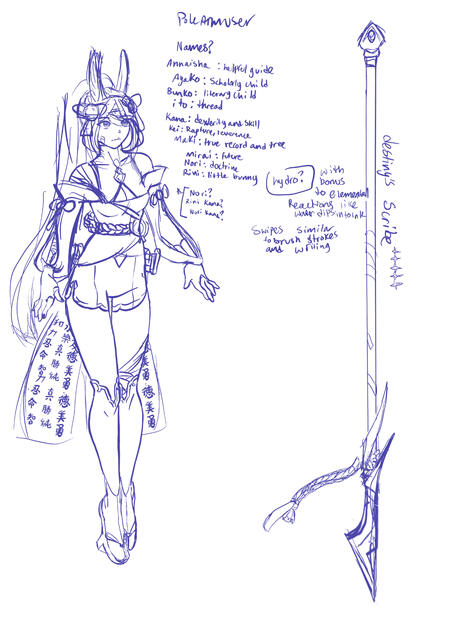 PoleArmuser
Names?
Annaisha: helpful guide
Ayako: Scholarly child
Bunko: literary child
ito: thread
Kana: dexterity and skill
Kei: Rapture, reverence
Maki: true record and tree
Mirai: future
Nori: doctrine
Rini: little bunny
* Nori?
Rini Kana?
Nori Kana?
hydro? with bonus
to elemental
Reactions like
dips into ink
Swipes similar
to brush strokes
and writing
destiny's Scribe
力忍命智
真勝純
徳美勇
力忍命智
真勝純
徳美勇